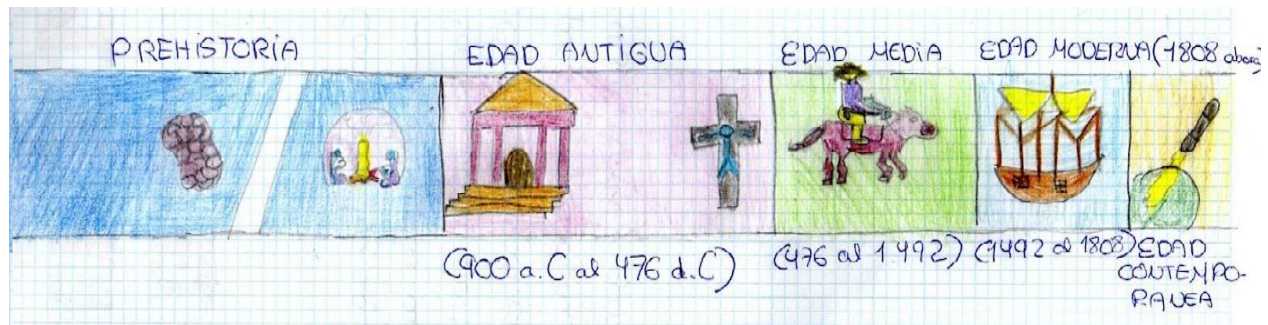 PREHISTORIA
EDAD ANTIGUA
EDAD MEDIA
EDAD MODERNA (1808 ahora)
(900 a.C al 476 d.C)
(476 al 1.492)
(1492 al 1808)
EDAD
CONTEMPO-
RANEA